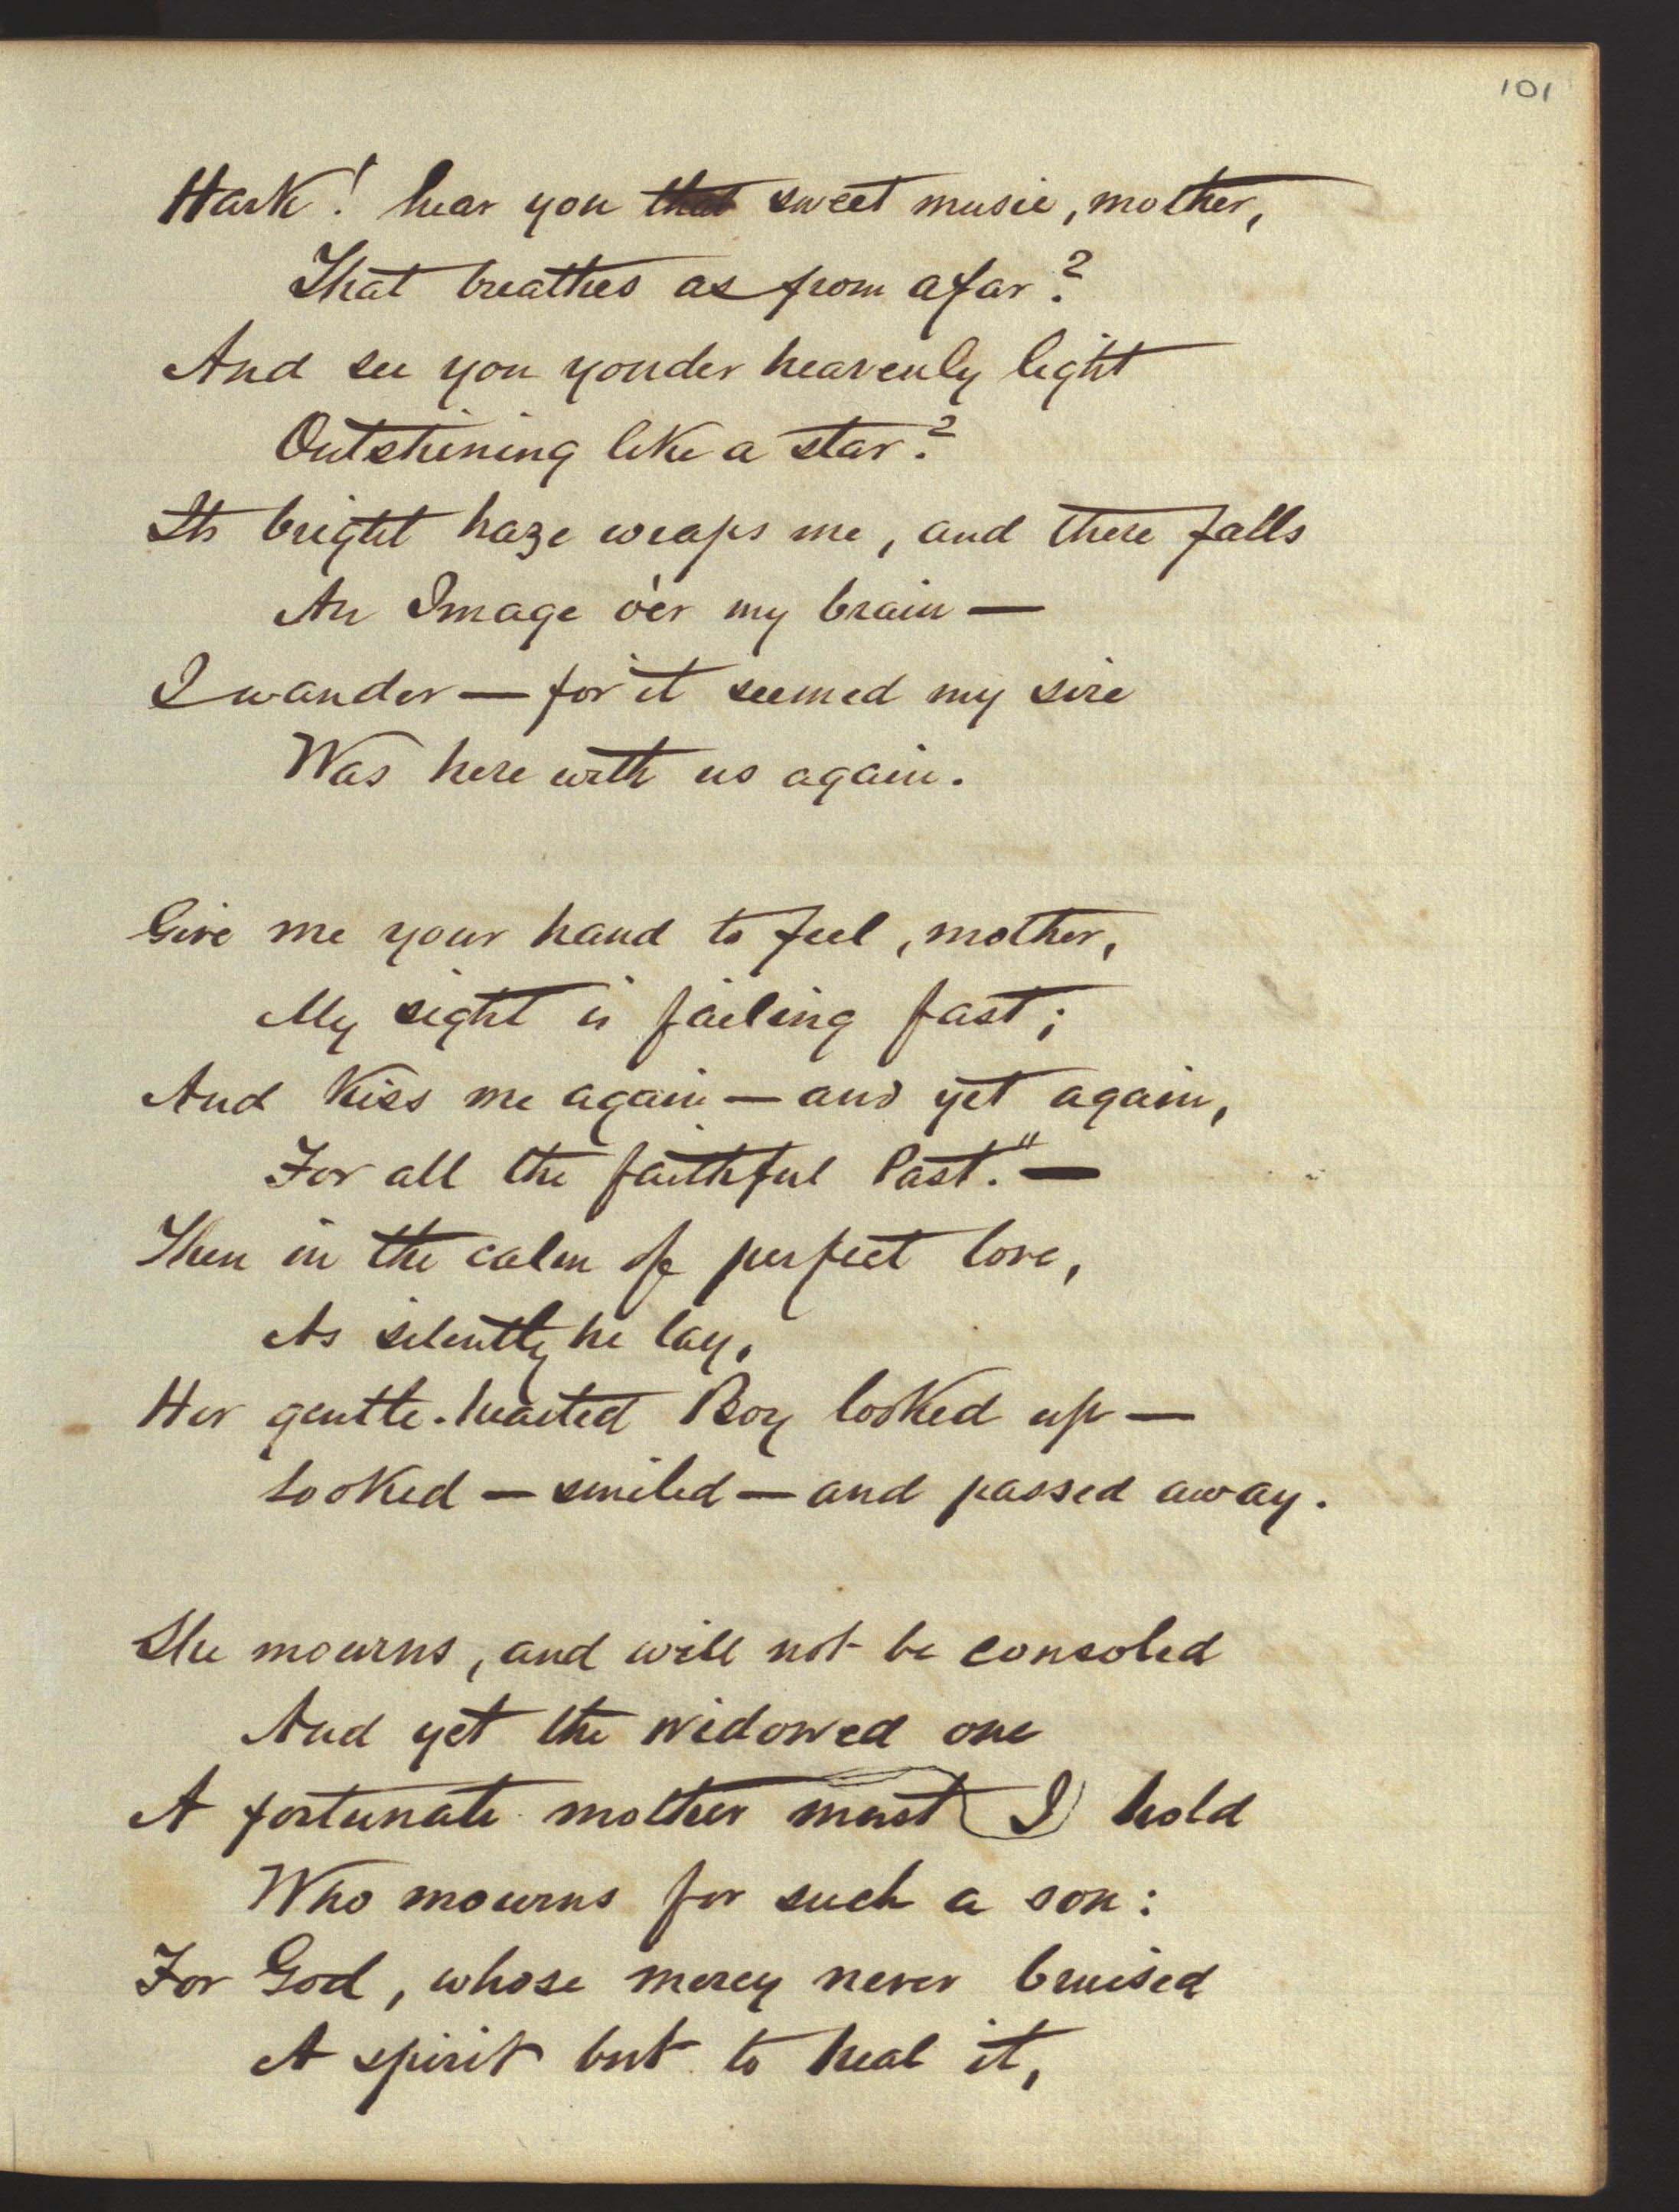 101
Hark! hear you that sweet music, mother,
That breathes as from afar?
And see you yonder heavenly light
Outshining like a star?
Its bright haze wraps me, and there falls
An Image o'er my brain —
I wander — for it seemed my sire
Was here with us again.
Give me your hand to feel, mother,
My sight is failing fast;
And kiss me again — and yet again,
For all the faithful Past." —
Then in the calm of perfect love,
As silently he lay,
Her gentle-hearted Boy looked up —
Looked — smiled — and passed away.
She mourns, and will not be consoled
And yet the widowed one
A fortunate mother must I hold
Who mourns for such a son:
For God, whose mercy never bruised
A spirit but to heal it,